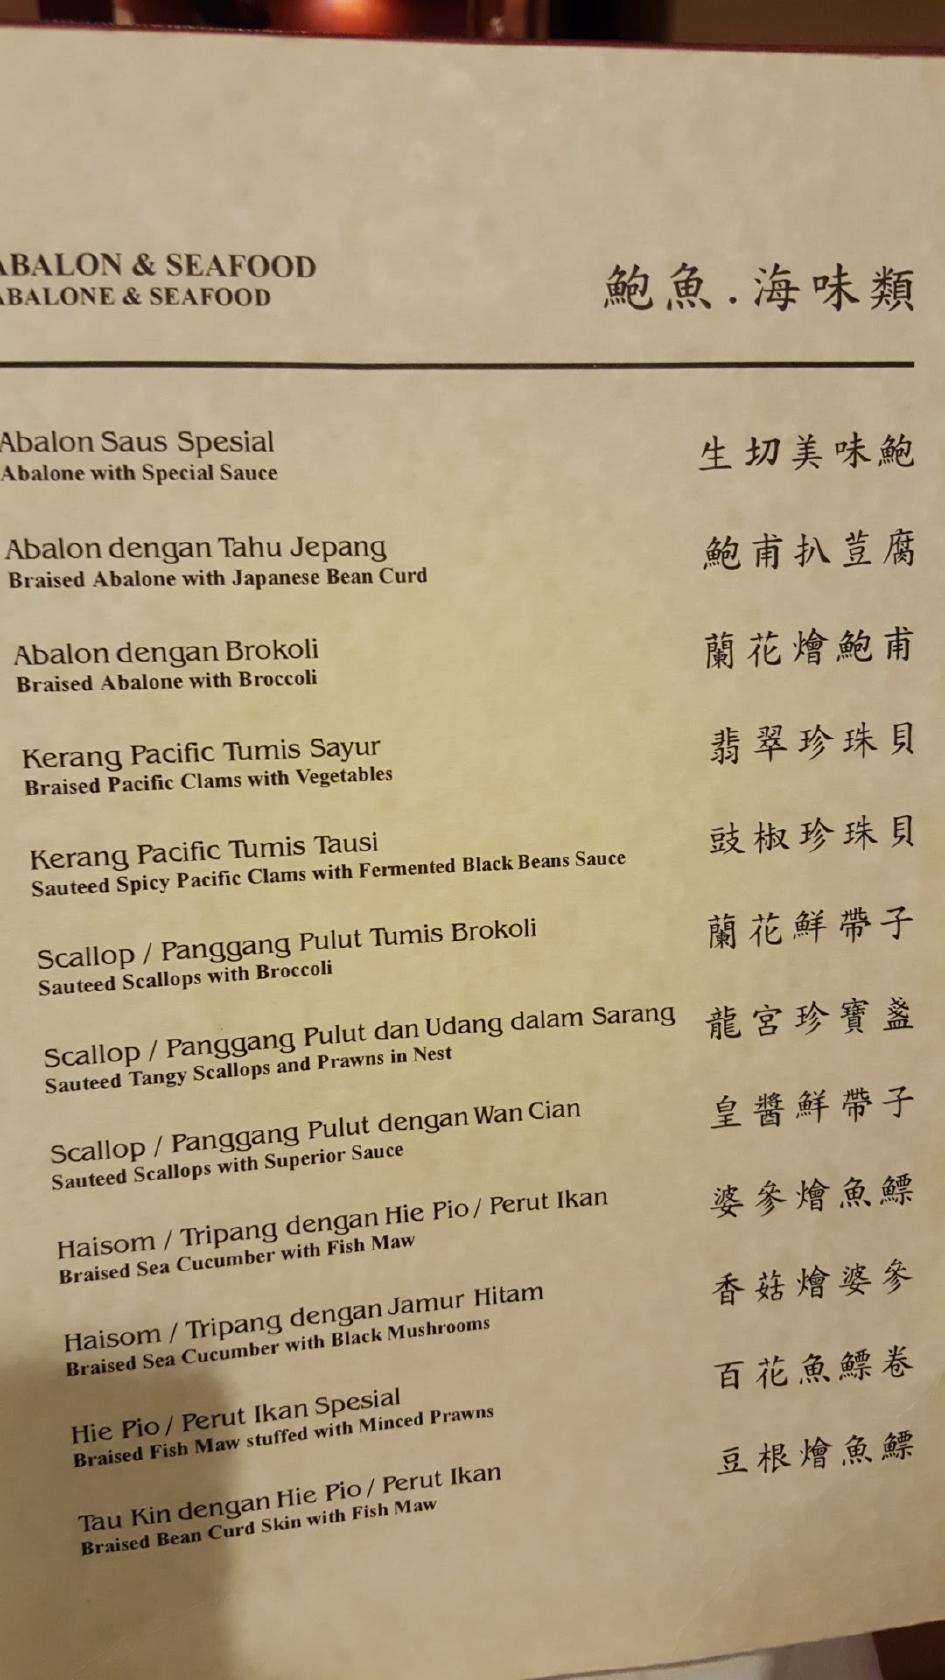 ABALON & SEAFOOD
ABALONE & SEAFOOD
鮑魚.海味類
Abalon Saus Spesial
Abalone with Special Sauce
生切美味鮑
Abalon dengan Tahu Jepang
Braised Abalone with Japanese Bean Curd
鮑甫扒荳腐
Abalon dengan Brokoli
Braised Abalone with Broccoli
蘭花燴鮑甫
Kerang Pacific Tumis Sayur
Braised Pacific Clams with Vegetables
翡翠珍珠貝
Kerang Pacific Tumis Tausi
Sauteed Spicy Pacific Clams with Fermented Black Beans Sauce
豉椒珍珠貝
Scallop / Panggang Pulut Tumis Brokoli
Sauteed Scallops with Broccoli
蘭花鮮帶子
Scallop / Panggang Pulut dan Udang dalam Sarang
Sauteed Tangy Scallops and Prawns in Nest
龍宮珍寶盞
Scallop / Panggang Pulut dengan Wan Cian
Sauteed Scallops with Superior Sauce
皇醬鮮帶子
Haisom / Tripang dengan Hie Pio / Perut Ikan
Braised Sea Cucumber with Fish Maw
婆參燴魚鰾
Haisom / Tripang dengan Jamur Hitam
Braised Sea Cucumber with Black Mushrooms
香菇燴婆參
Hie Pio / Perut Ikan Spesial
Braised Fish Maw stuffed with Minced Prawns
百花魚鰾卷
Tau Kin dengan Hie Pio / Perut Ikan
Braised Bean Curd Skin with Fish Maw
豆根燴魚鰾